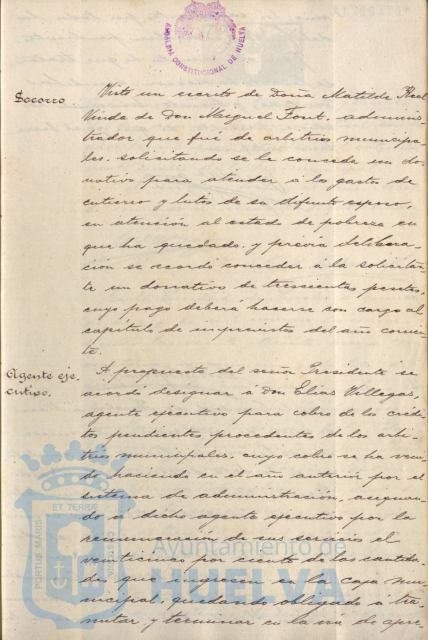 ALCALDIA CONSTITUCIONAL DE HUELVA
Socorro
Visto un escrito de Doña Matilde Real
Viuda de Don Manuel Font, adminis-
trador que fué de arbitrios municipa-
les, solicitando se le conceda un do-
nativo para atender á los gastos de
entierro y lutos de su difunto esposo,
en atención al estado de pobreza en
que ha quedado, y previa delibera-
ción se acordó conceder á la solicitan-
te un donativo de trescientas pesetas,
cuyo pago deberá hacerse con cargo al
capítulo de imprevistos del año corrien-
te.
Agente eje-
cutivo.
A propuesta del señor Presidente se
acordó designar á don Elias Villegas,
agente ejecutivo para cobro de los crédi-
tos pendientes procedentes de los arbi-
trios municipales, cuyo cobro se ha veni-
do haciendo en el año anterior por el
sistema de administración, asignan-
do á dicho agente ejecutivo por la
remuneración de su servicio el
veinticinco por ciento de las cantida-
des que ingresen en la caja mu-
nicipal, quedando obligado á tra-
mitar y terminar en la via de apre-
PORTUS MARIS ET TERRAE
Ayuntamiento de
HUELVA